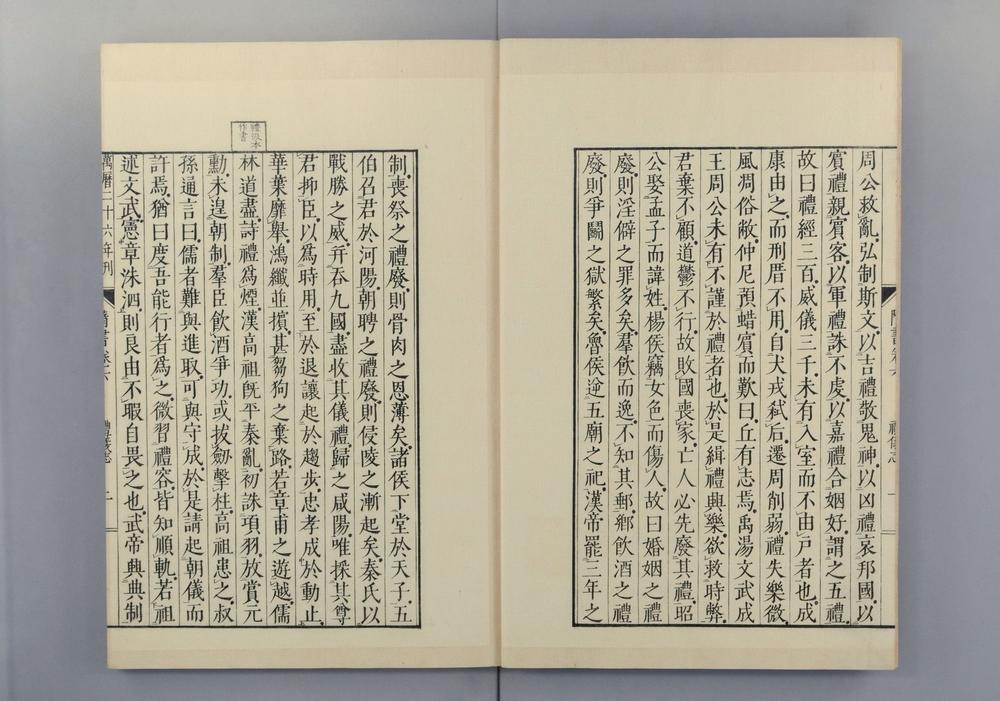 隋書卷六 禮儀志 一
周公救亂弘制斯文以吉禮敬鬼神以凶禮哀邦國以
賓禮親賓客以軍禮誅不虔以嘉禮合姻好謂之五禮
故曰禮經三百威儀三千未有入室而不由戶者也成
康由之而刑厝不用自犬戎弑后遷周削弱禮失樂微
風凋俗敝仲尼預蜡賓而歎曰丘有志焉禹湯文武成
王周公未有不謹於禮者也於是緝禮興樂欲救時弊
君棄不顧道鬱不行故敗國喪家亡人必先廢其禮昭
公娶孟子而諱姓楊侯竊女色而傷人故曰婚姻之禮
廢則淫僻之罪多矣羣飲而逸不知其郵鄉飲酒之禮
廢則爭鬭之獄繁矣魯侯逆五廟之祀漢帝罷三年之
制喪祭之禮廢則骨肉之恩薄矣諸侯下堂於天子五
伯召君於河陽朝聘之禮廢則侵陵之漸起矣秦氏以
戰勝之威并吞九國盡收其儀禮歸之咸陽唯採其尊
君抑臣以爲時用至於退讓起於趨步忠孝成於動止
華葉靡舉鴻纖並擯甚芻狗之棄路若章甫之遊越儒
禮汲本
作書
林道盡詩禮爲煙漢高祖旣平秦亂初誅項羽放賞元
勳未遑朝制羣臣飲酒爭功或拔劒擊柱高祖患之叔
孫通言曰儒者難與進取可與守成於是請起朝儀而
許焉猶曰度吾能行者爲之微習禮容皆知順軌若祖
述文武憲章洙泗則良由不暇自畏之也武帝興典制
萬曆二十六年刊 隋書卷六 禮儀志 一